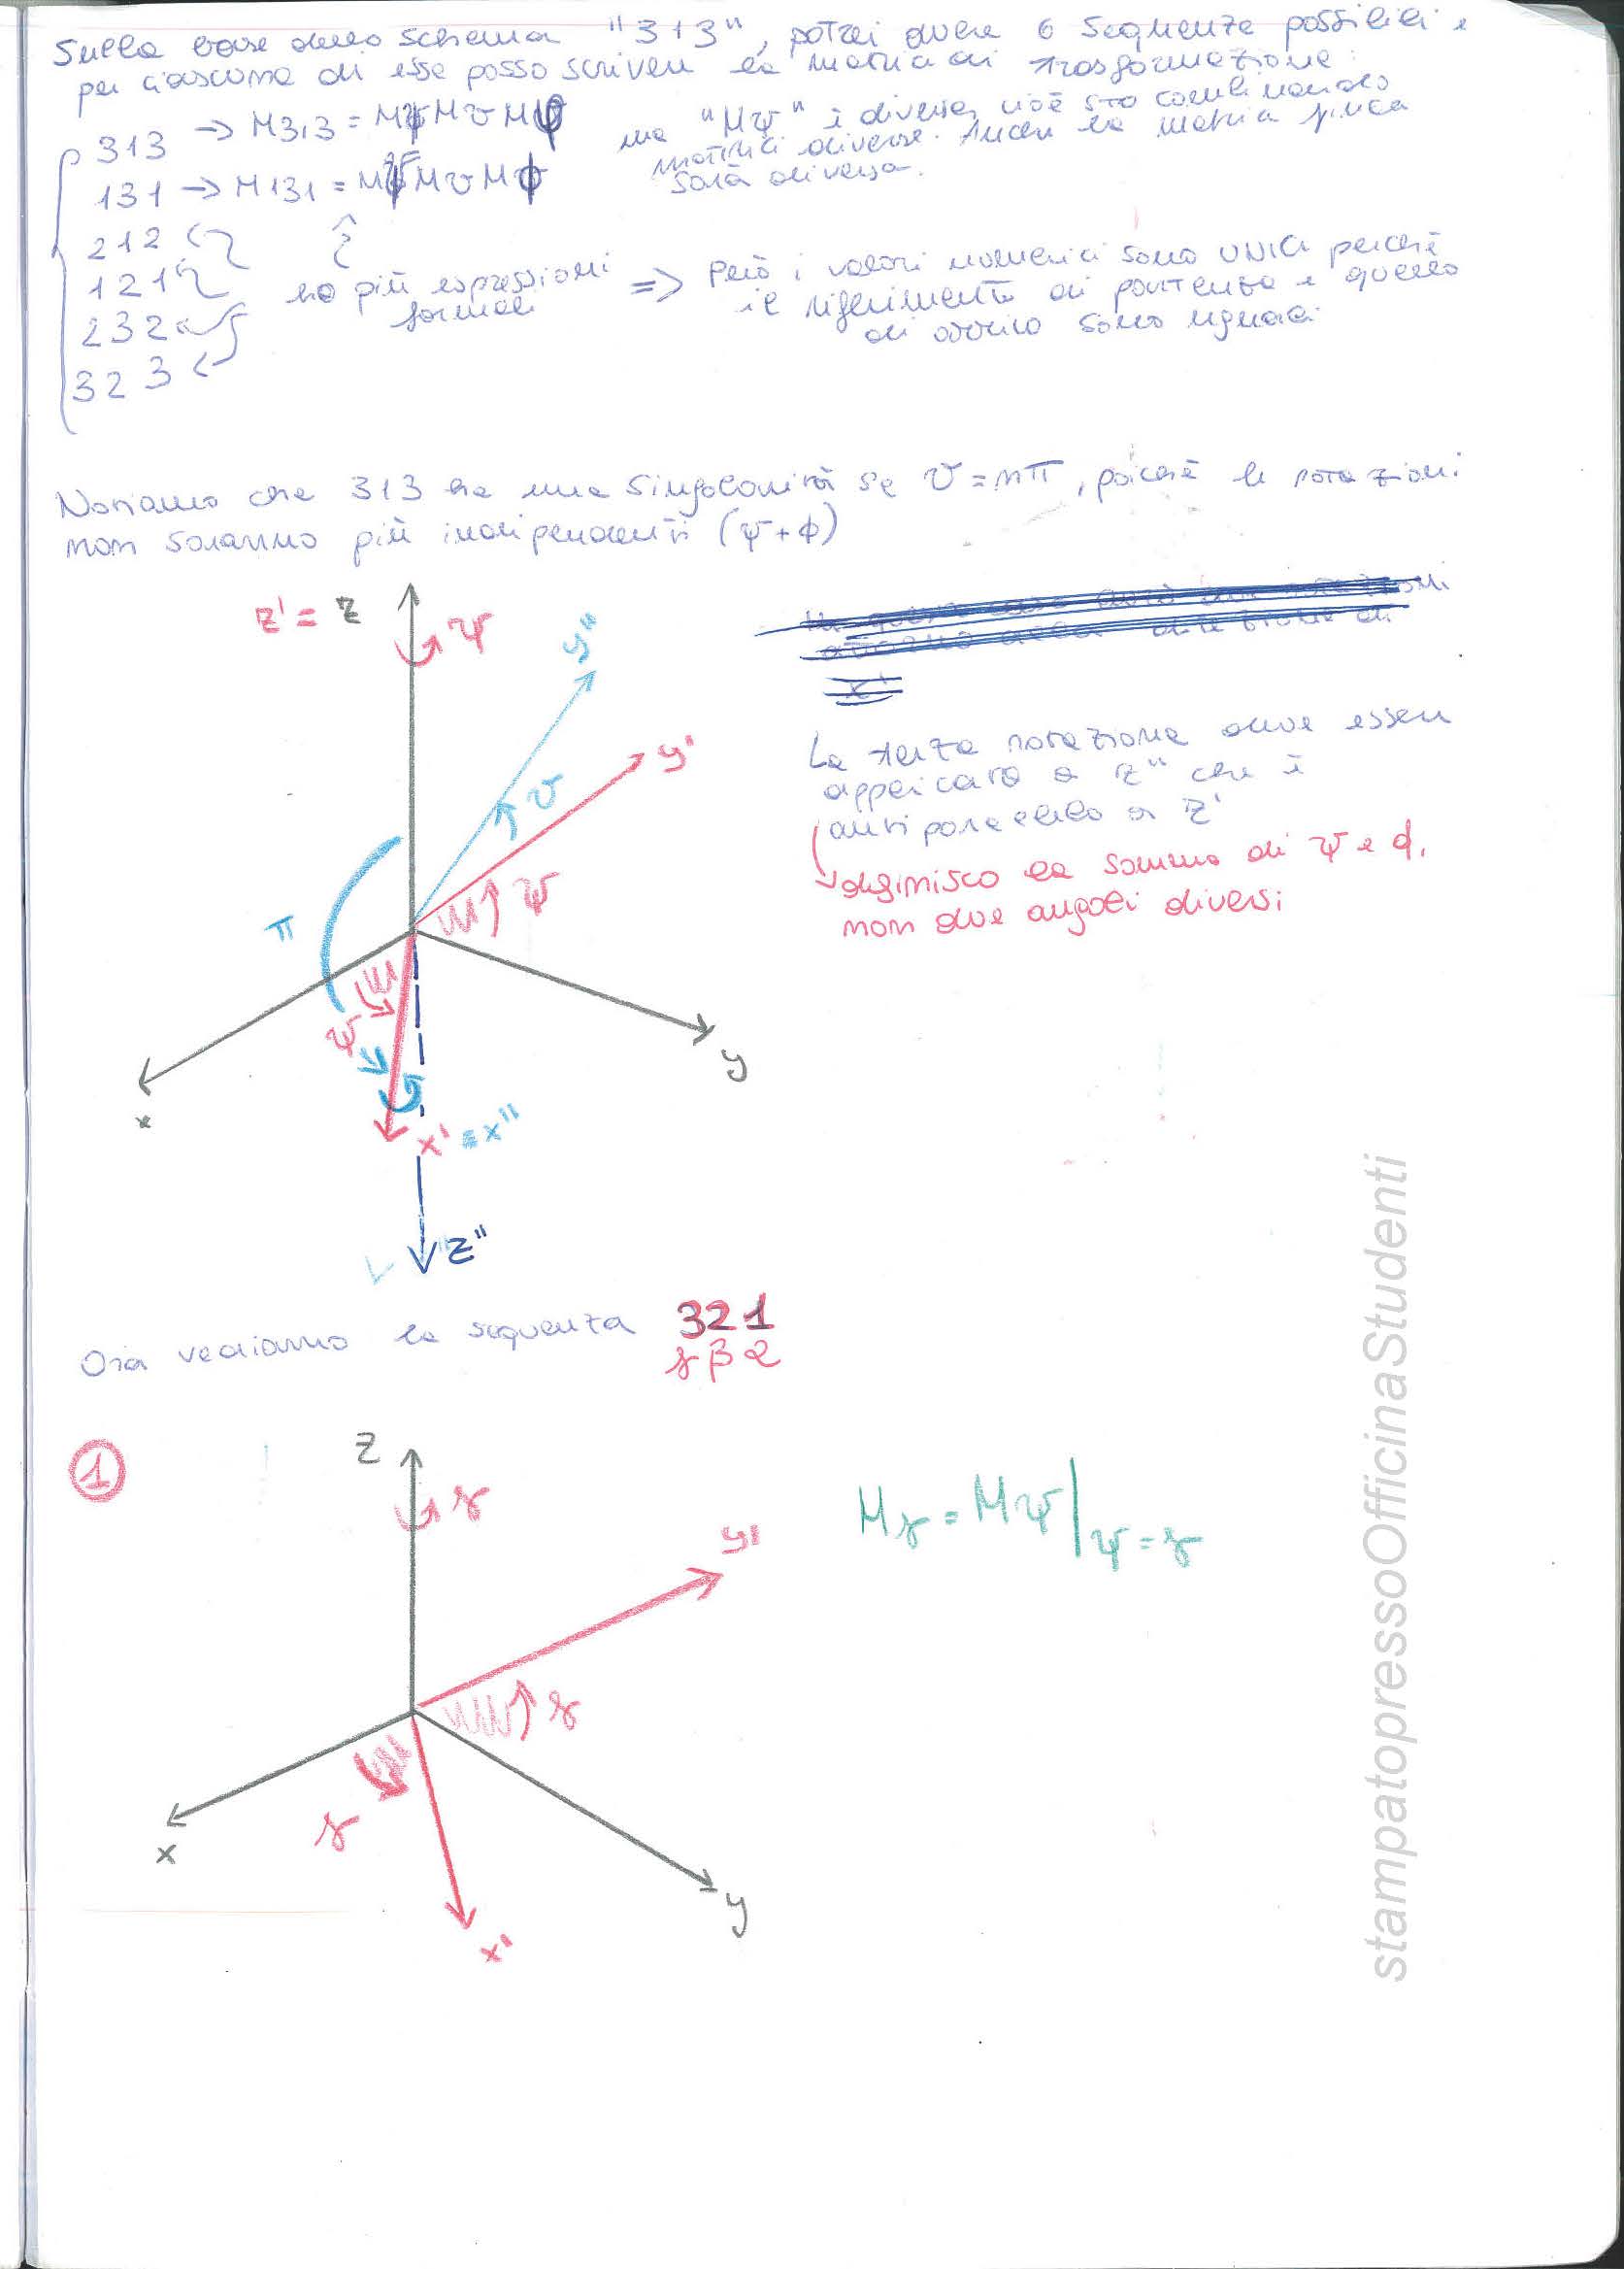 Sulla base dello schema "313", potrei avere 6 sequenze possibili e
per ciascuna di esse posso scrivere la matrice di trasformazione:
313 → M313 = Mψ Mϑ Mφ
ma "Mψ" è diversa, cioè sto combinando
matrici diverse. Anche la matrice finale
sarà diversa.
131 → M131 = Mψ Mϑ Mφ
212
121
232
323
ho più espressioni
formali
=> Però i valori numerici sono UNICI perché
il riferimento di partenza e quello
di arrivo sono uguali
Notiamo che 313 ha una singolarità se ϑ = nπ, poiché le rotazioni
non saranno più indipendenti (ψ+φ)
z' = z
ψ
y"
y'
ϑ
ψ
π
ψ
x
y
x' ≡ x"
z"
x'
La terza rotazione deve essere
applicata a z" che è
antiparallelo a z'
definisco la somma di ψ e φ,
non due angoli diversi
Ora vediamo la sequenza 321
γ β α
1
z
γ
y'
γ
γ
x
y
x'
Mγ = Mψ|ψ=γ
stampatopressoOfficinaStudenti